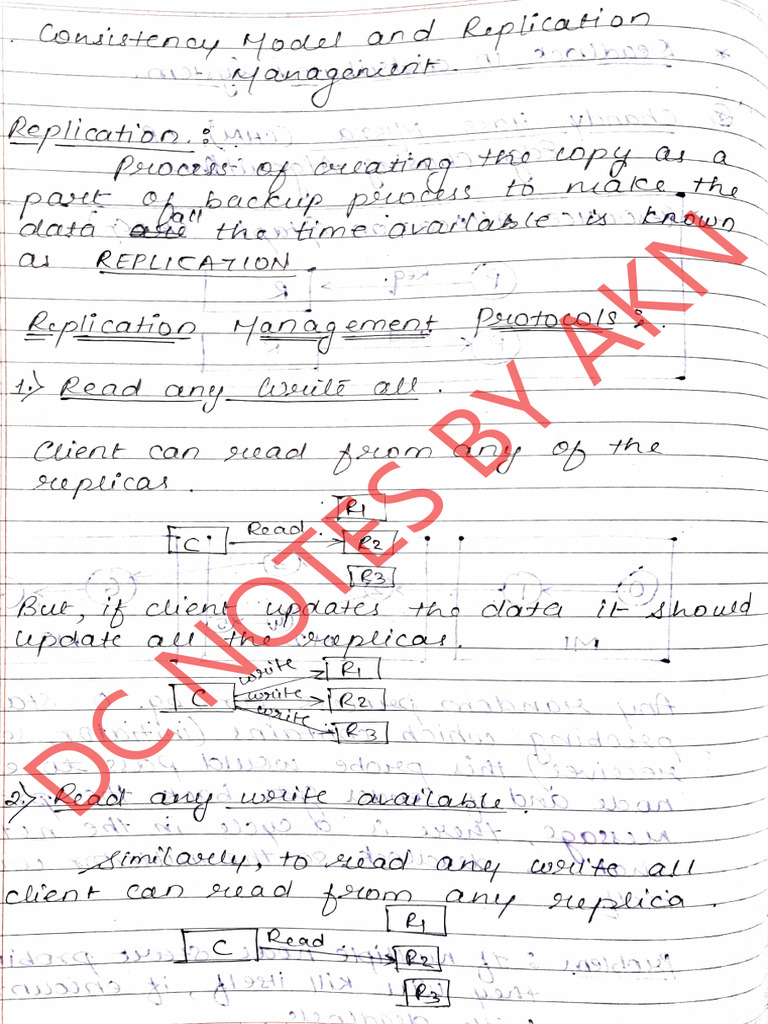 Consistency Model and Replication
Management.
Replication :
Process of creating the copy as a
part of backup process to make the
all
data are the time available is known
as REPLICATION.
Replication Management Protocols :
1.) Read any Write all.
Client can read from any of the
replicas.
R1
C Read R2
R3
But, if client updates the data it should
update all the replicas.
write R1
C write R2
write R3
2.) Read any write available.
Similarly, to read any write all
client can read from any replica.
R1
C Read R2
R3
DC NOTES BY AKN